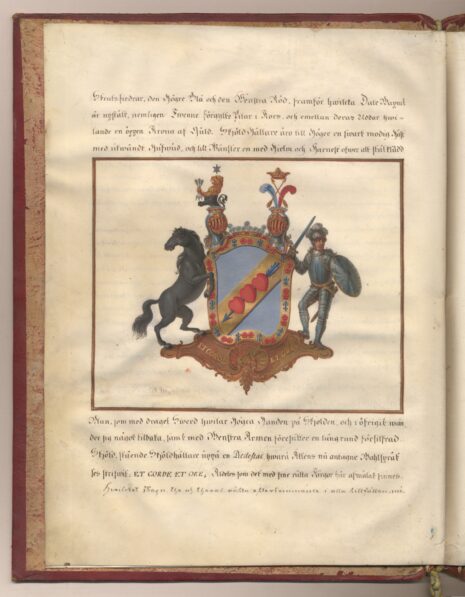 Strutsfiedrar, den Högre Blå och den Wenstra Röd, framför hwilcka Dale Wapnet
är upstält, nemligen Twenne förgylte Pilar i Kors, och emellan deras Uddar hwi-
lande en öppen Krona af Guld. Skiöld Hållare äro till Höger en swart modig Häst
med utwändt Hufwud, och till Wänster en med Hielm och Harnesk öfwer alt stålklädd
ET CORDE ET ORE
Man, som med draget Swerd hwilar Högra Handen på Skiölden, och i öfrigit wän
der sig något tilbaka, samt med Wenstra Armen föreställer en lång rund förSilfrad
Skiöld, stående Skiöldhållare uppå en Piedestal hwarå Ättens nu antagne Wahlspråk
läses skrifwit; ET CORDE ET ORE; Aldeles som det med sine rätta Färgor här afmålat finnes.
Hwilcket Wapn the och theras ächta efterkommande i alla tillfällen, må